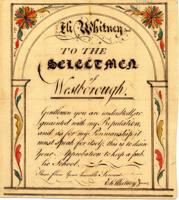 Eli Whitney
TO THE
SELECTMEN
of
Westborough.
Gentlemen you are undoubtedly
acquainted with my Reputation,
and as for my Penmanship it
must speak for itself; this is to desire
Your Approbation to keep a public
School.
from your humble Servant
Eli Whitney Junr